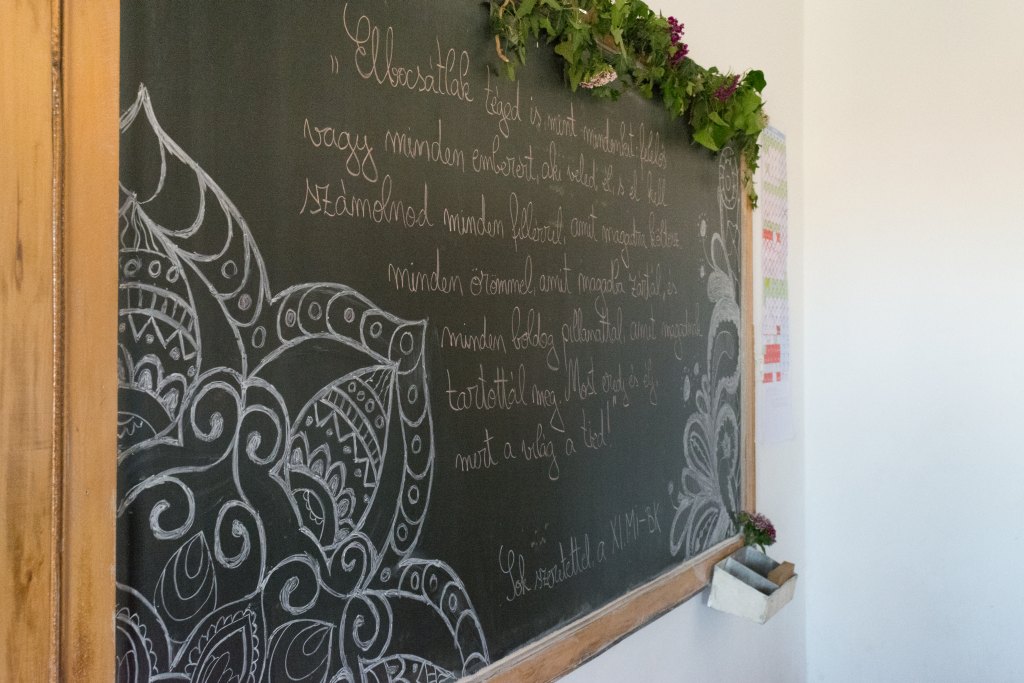 „Elbocsátlak téged is, mint mindenkit: felelős
vagy minden emberért, aki veled él, s el kell
számolnod minden fillérrel, amit magadra költesz,
minden örömmel, amit magadba zártál, és
minden boldog pillanattal, amit magadnak
tartottál meg. Most eredj, és élj,
mert a világ a tiéd!"
Sok szeretettel, a XI.M1-BK